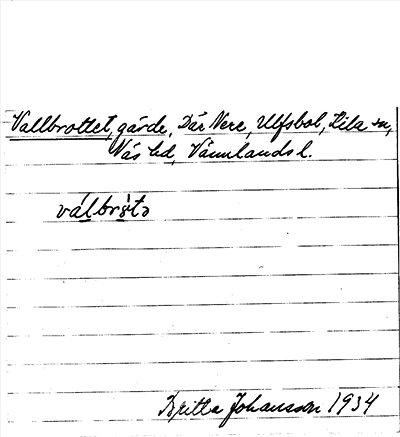 Vallbrottet, gärde, Där Nere, Ulfsbol, Lila sn,
Näs hd, Värmlands l.
válbròtə
Britta Johansson 1934